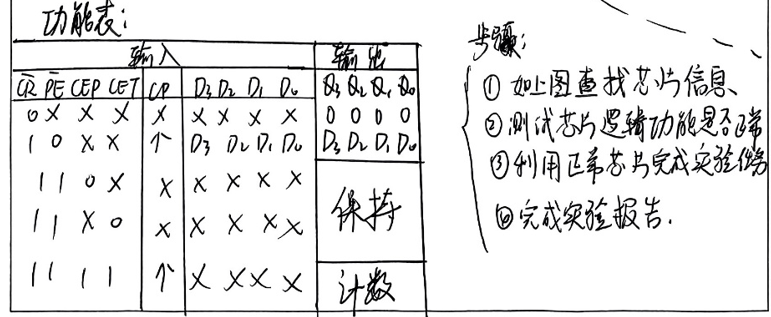 功能表:
输入 输出
C̅R̅ P̅E̅ CEP CET CP D₃ D₂ D₁ D₀ Q₃ Q₂ Q₁ Q₀
0 X X X X X X X X 0 0 0 0
1 0 X X ↑ D₃ D₂ D₁ D₀ D₃ D₂ D₁ D₀
1 1 0 X X X X X X
保持
1 1 X 0 X X X X X
1 1 1 1 ↑ X X X X 计数
步骤:
① 如上图查找芯片信息
② 测试芯片逻辑功能是否正常
③ 利用正常芯片完成实验任务
④ 完成实验报告.